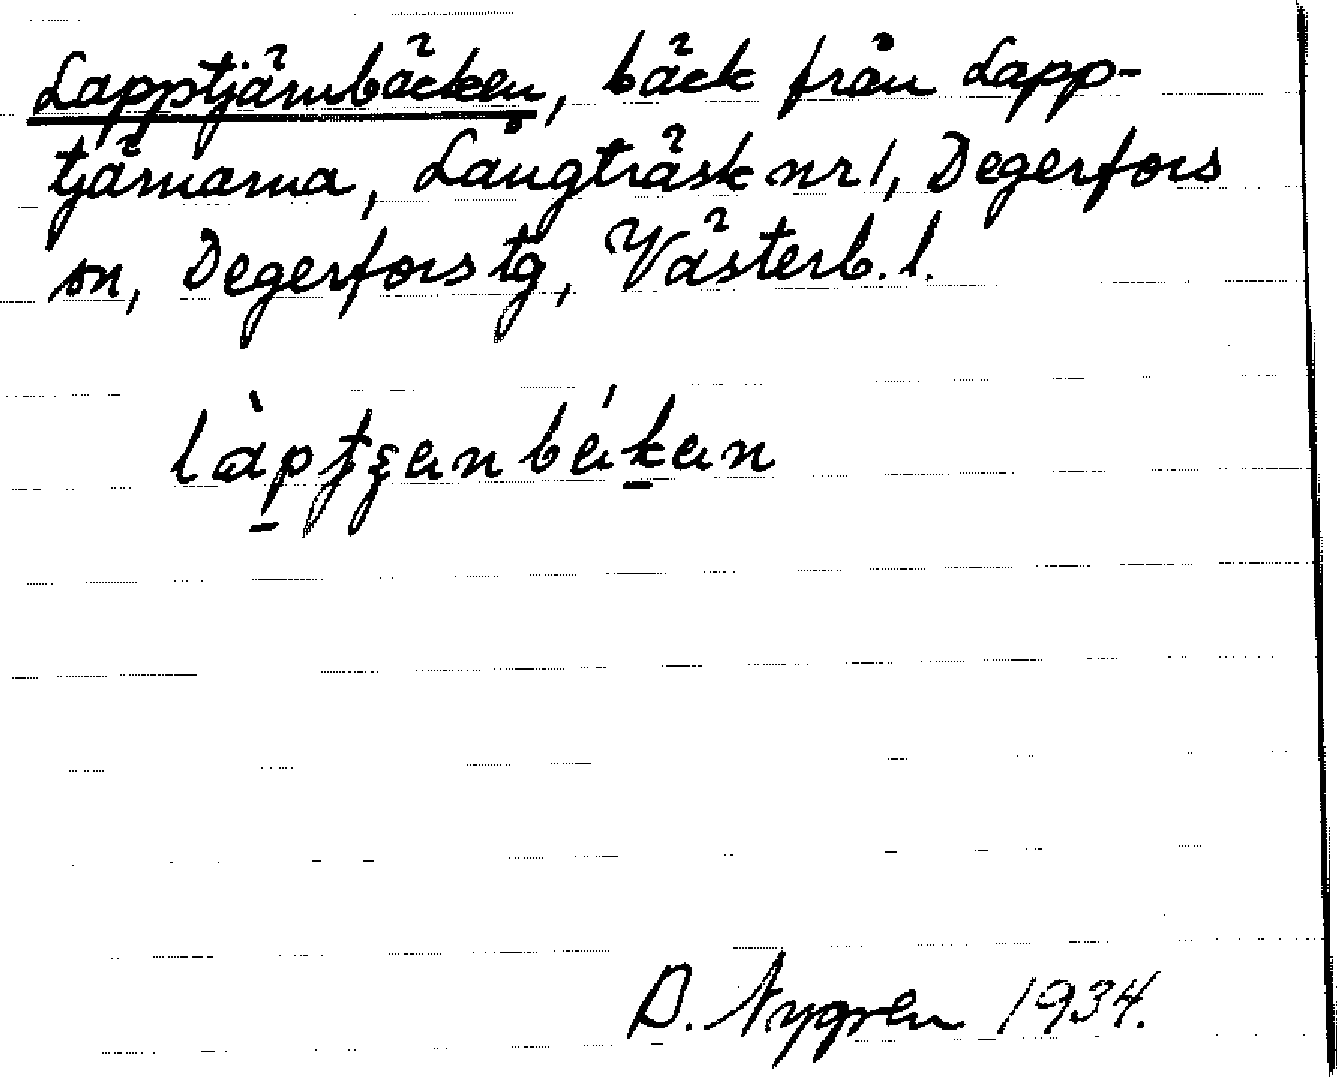 Lapptjärnbäcken, bäck från Lapp-
tjärnarna, Långträsk nr 1, Degerfors
sn, Degerfors tg, Västerb. l.
D. Nygren 1934.